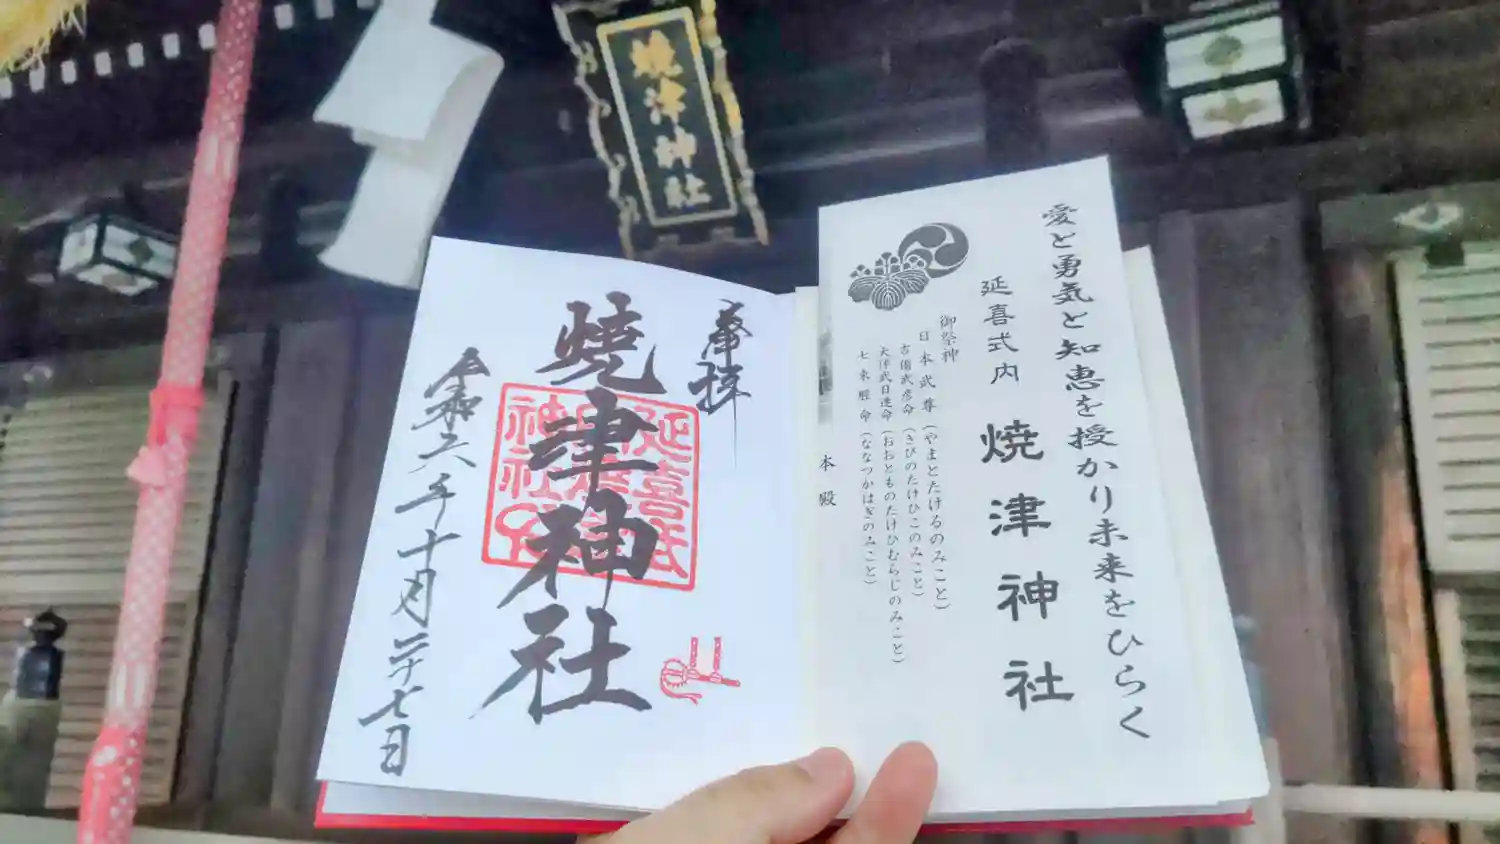 焼津神社
愛と勇気と知恵を授かり未来をひらく
延喜式内 焼津神社
御祭神
日本武尊(やまとたけるのみこと)
吉備武彦命(きびのたけひこのみこと)
大伴武日連命(おおとものたけひむらじのみこと)
七束脛命(ななつかはぎのみこと)
本殿
奉拝
焼津神社
令和六年十月二十七日